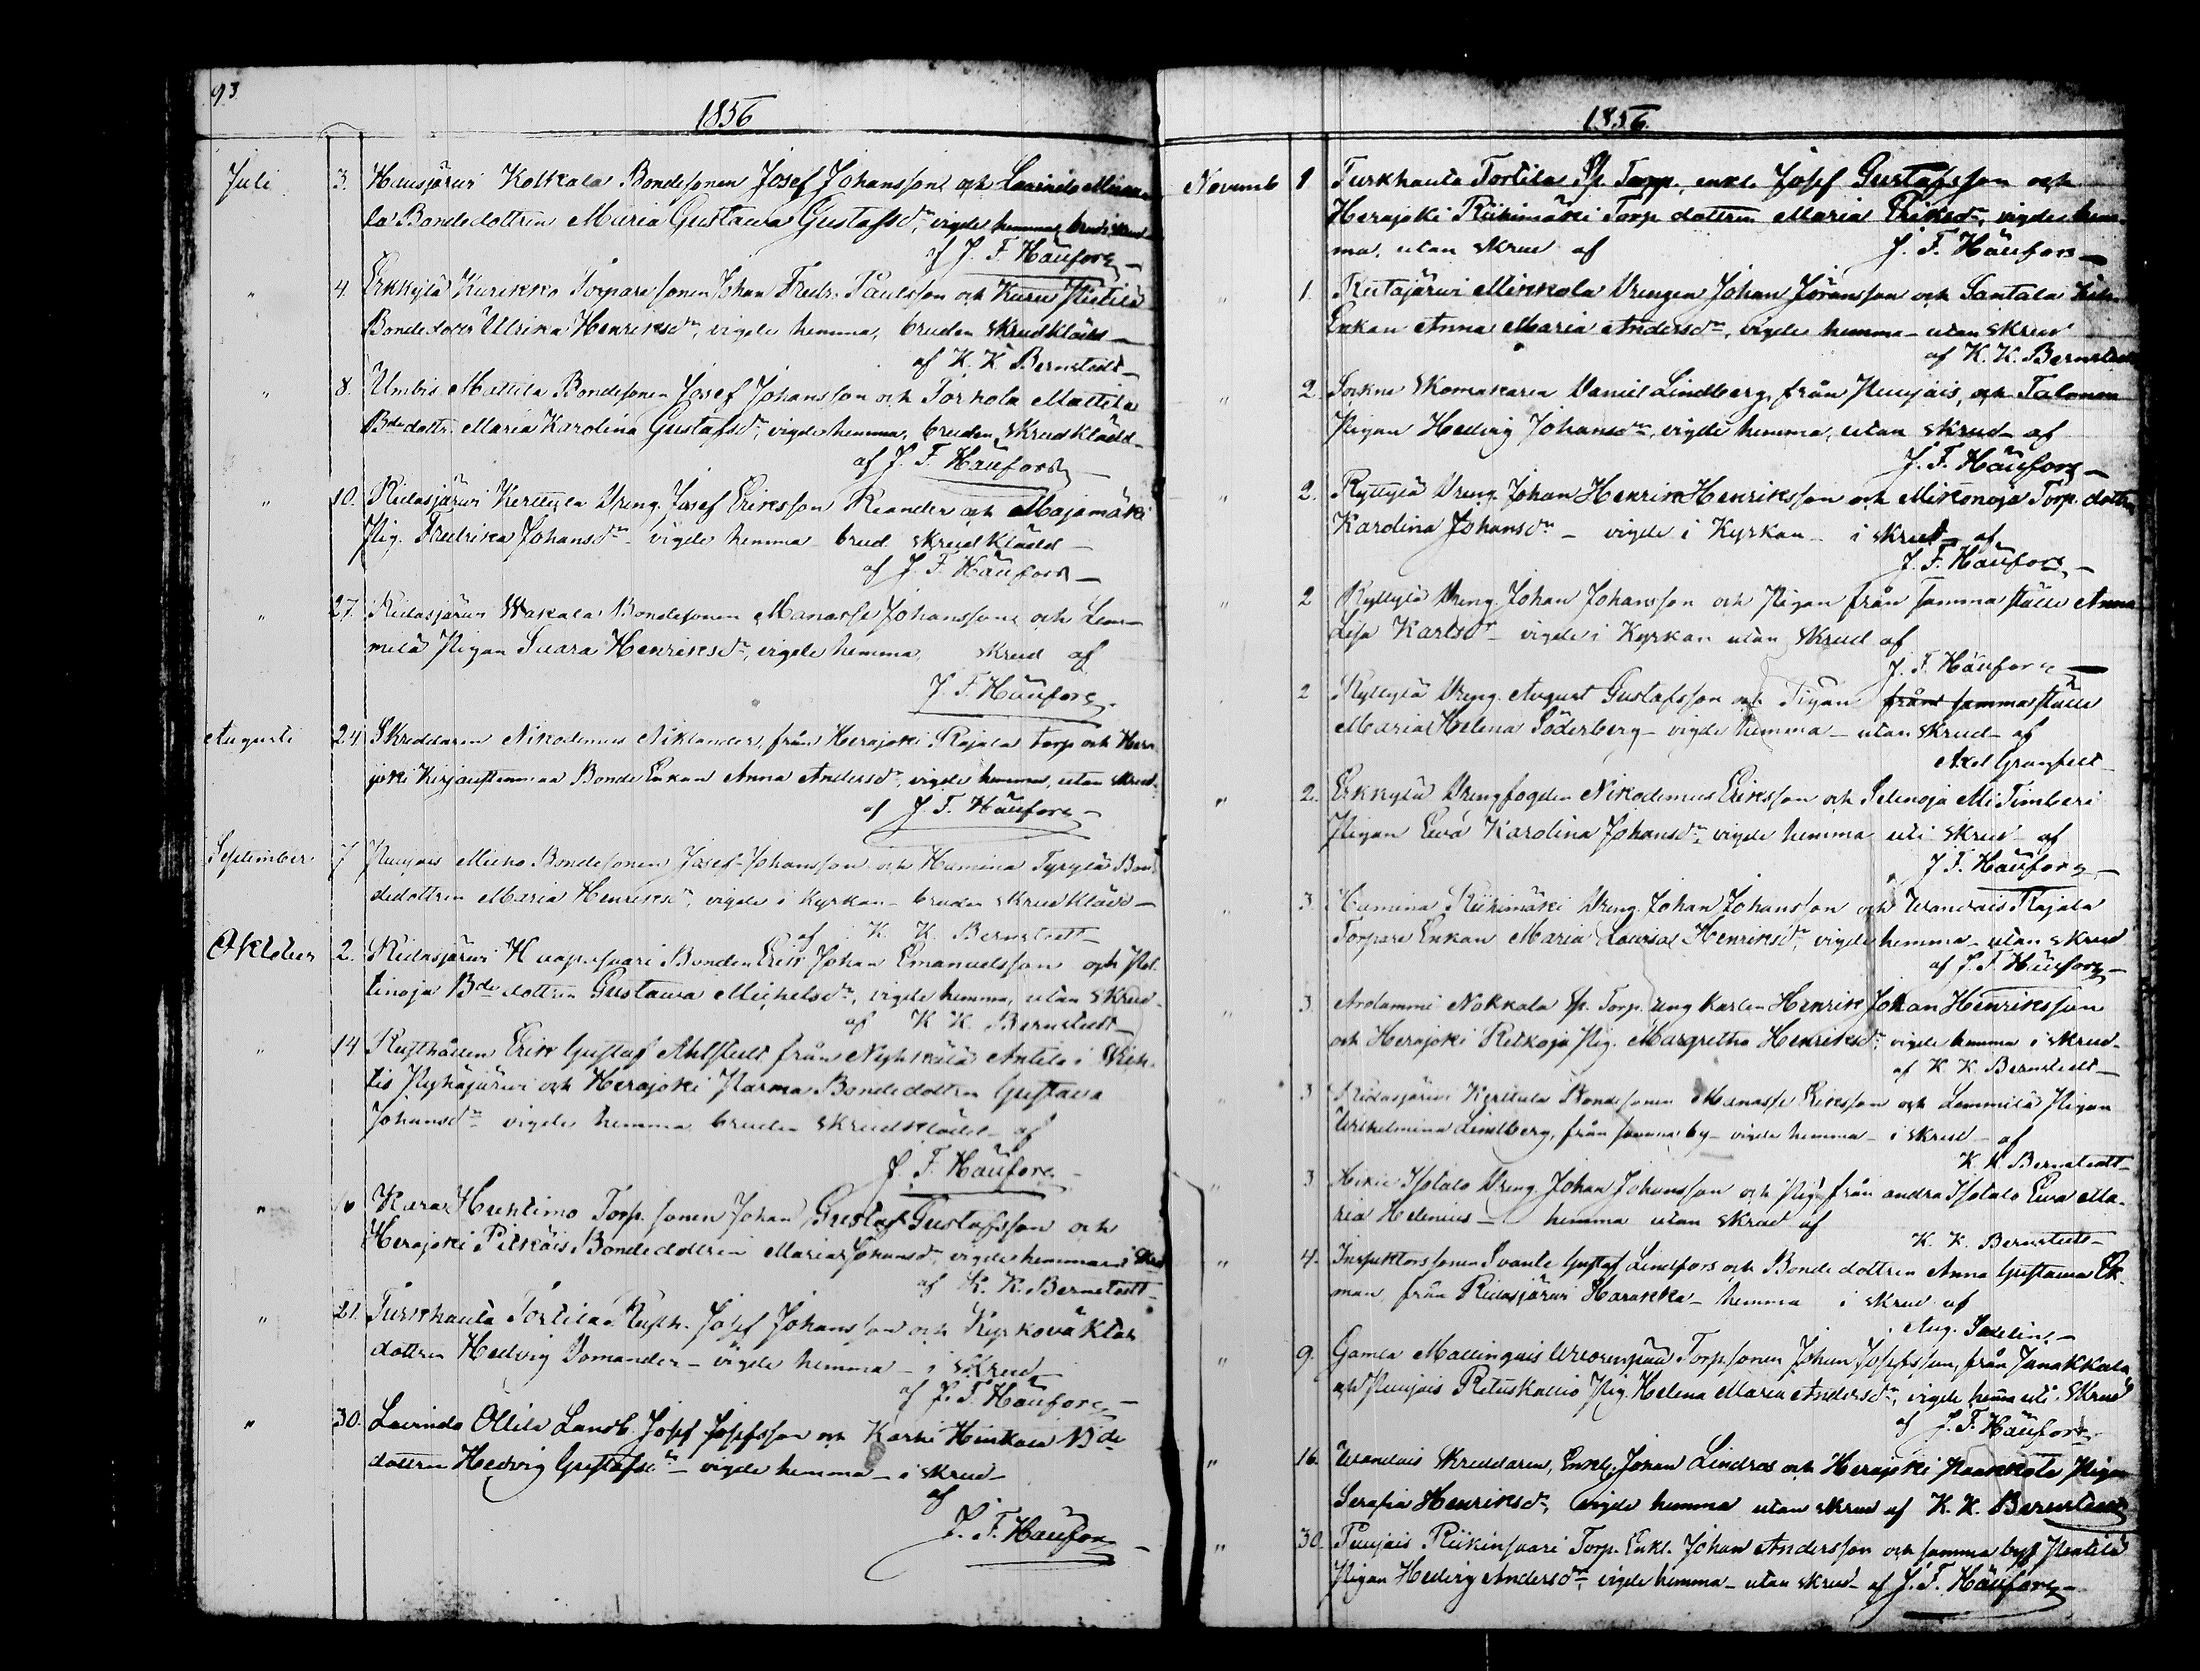 93
1856
Juli 3. Hausjärwi Kolkala Bondesonen Josef Johansson och Lavinda
la Bondedottren Maria Gustawa Gustafsdr, vigde hemma,
af J. F. Häufors
" 4. Erkkylä Kurikko Torpare sonen Johan Fredr. Paulsson och Kuru Pietilä
Bondedottr Ulrika Henriksdr, vigde hemma, bruden skrudkläd
af K. K. Bernstedt
" 8. Umbis Mattila Bondesonen Josef Johansson och Torhola Mattila
Bde dottr. Maria Karolina Gustafsdr, vigde hemma, bruden skrudklädd
af J. F. Häufors
" 10. Ridasjärwi Kerttula Dreng. Josef Eriksson Reander och Majamäki
Pig. Fredrika Johansdr vigde hemma brud skrudklädd
af J. F. Häufors
" 27. Ridasjärwi Wakala Bondesonen Manasse Johansson och Lem-
milä Pigan Henriksdr, vigde hemma, skrud af
J. F. Häufors
Augusti 24 Skreddaren Nikodemus Niklander, från Herajoki Rajala torp och Hera
joki Bonde Enkan Anna Andersdr, vigde hemma, utan skrud
af J. F. Häufors
September 7 Puujais Bondesonen Josef Johansson och Hamina Tyrylä Bon-
dedottren Maria Henriksdr, vigde i Kyrkan bruden skrudkläd
af K. K. Bernstedt
Oktober 2. Ridasjärwi Bonden Erik Johan Emanuelsson och
tinoja Bde dottren Gustawa Michelsdr, vigde hemma, utan skrud
af K. K. Bernstedt
" 14 Rusthållen Erik Gustaf Ahlstedt från Antila i Wich-
tis Pyhäjärwi och Herajoki Parma Bondedottren Gustawa
Johansdr vigde hemma bruden skrudklädd af
J. F. Häufors
" Kara Huntimo Torp. sonen Johan Gustaf Gustafsson och
Herajoki Pitkäis Bondedottren Maria Johansdr, vigde hemma i skrud
af K. K. Bernstedt
" 21. Turkhauta Tortila Rusth. Josef Johansson och Kyrkoväktar
dottren Hedvig Domander vigde hemma i skrud
af J. F. Häufors
" 30. Lavinda Ollila Landb. Josef Josefsson och Karhi Bde
dottren Hedvig Gustafsdr vigde hemma i skrud
af
J. F. Häufors
1856.
Novemb 1 Turkhauta Tortila Sp. Torp. enkl. Josef Gustafsson och
Herajoki Riihimäki Torp. dottren Maria Eriksdr, vigde hem-
ma, utan skrud af J. F. Häufors
" 1. Ridasjärwi Mikkola Drengen Johan Jöransson och Santala
Enkan Anna Maria Andersdr, vigde hemma utan skrud
af K. K. Bernstedt
" 2. Sockne Skomakaren Daniel Lindberg, från Puujais, och Talonen
Pigan Hedvig Johansdr, vigde hemma, utan skrud af
J. F. Häufors
" 2. Ryttylä Dreng. Johan Henrik Henriksson och Mikonoja Torp. dottren
Karolina Johansdr vigde i Kyrkan i skrud af
J. F. Häufors
" 2 Ryttylä Dreng. Johan Johansson och Pigan från samma ställe Anna
Lisa Karlsdr vigde i Kyrkan utan skrud af
J. F. Häufors
" 2 Ryttylä Dreng. August Gustafsson och Pigan från samma ställe
Maria Helena Söderberg vigde hemma utan skrud af
Axel Granfelt
" 2. Erkkylä Drengfogden Nikodemus Eriksson och Selinoja
Pigan Ewa Karolina Johansdr vigde hemma uti skrud af
J. F. Häufors
" 3. Hamina Riihimäki Dreng. Johan Johansson och Wandais Rajala
Torpare Enkan Maria Lovisa Henriksdr vigde hemma utan skrud
af J. F. Häufors
" 3. Arolammi Nokkala Sp. Torp. ung karlen Henrik Johan Henriksson
och Herajoki Ritkoja Pig. Margretha Henriksdr vigde hemma i skrud
af K. K. Bernstedt
" 3 Ridasjärwi Kerttula Bondesonen Manasse Eriksson och Lemmilä Pigan
Wilhelmina Lindberg, från samma by vigde hemma i skrud af
K. K. Bernstedt
" 3 Hikiä Isotalo Dreng Johan Johansson och Pig. från andra Isotalo Ewa Ma-
ria Helenius hemma utan skrud af
K. K. Bernstedt
" 4. Inspektorssonen Svante Gustaf Lindfors och Bonde dottren Anna Gustawa Ek-
man, från Ridasjärwi Harakka hemma i skrud af
Aug. Sadelin.
" 9. Gamla Mallinguis Torpsonen Johan Josefsson, från Janakkala
och Puujais Rituskallio Pig. Helena Maria Andersdr, vigde hemma uti skrud
af J. F. Häufors
" 16. Wandais Skreddaren, Enkl. Johan Lindros och Herajoki Paakkola Pigan
Serafia Henriksdr, vigde hemma utan skrud af K. K. Bernstedt
" 30. Puujais Riikinsaari Torp. Enkl. Johan Andersson och samma bys Pentilä
Pigan Hedvig Andersdr, vigde hemma utan skrud af J. F. Häufors